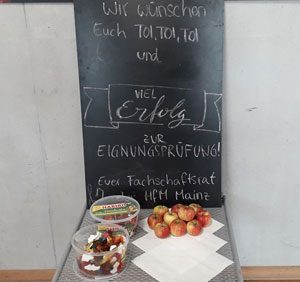 Wir wünschen
Euch TOI, TOI, TOI
und
VIEL
Erfolg
ZUR
EIGNUNGSPRÜFUNG!
Euer Fachschaftsrat
HfM Mainz
HARIBO